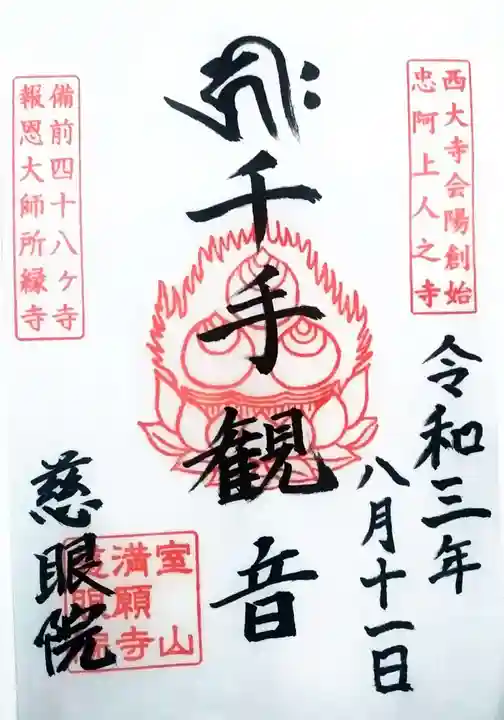 西大寺会陽創始
忠阿上人之寺
令和三年
八月十一日
千手観音
備前四十八ヶ寺
報恩大師所縁寺
慈眼院
室山
満願寺